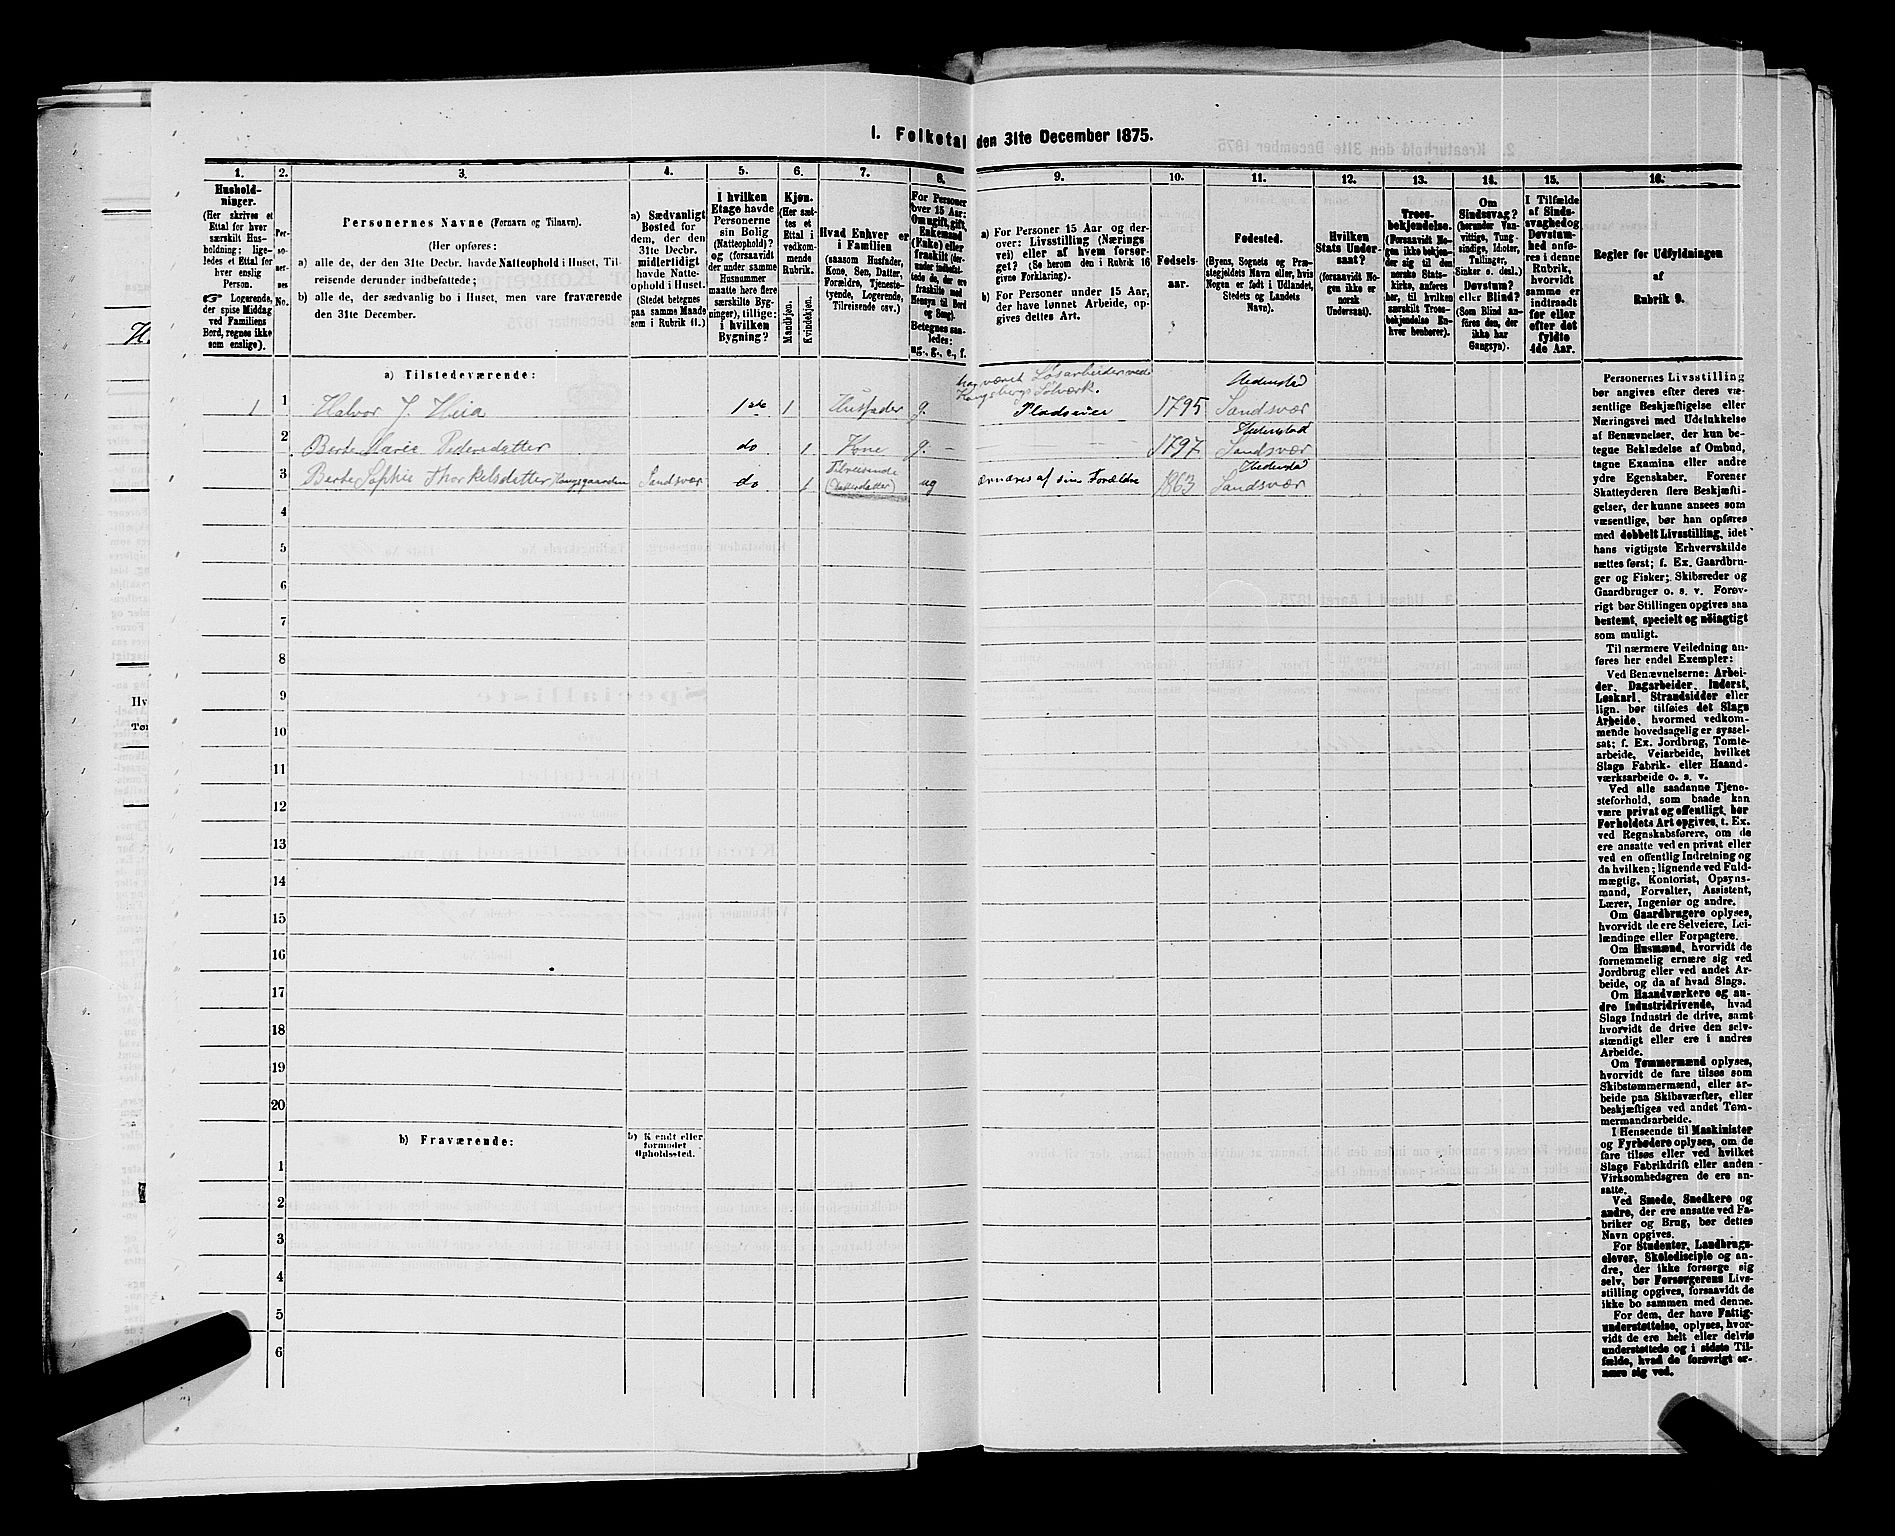 I. Folketal den 31te December 1875.
1. 2. 3. 4. 5. 6. 7. 8. 9. 10. 11. 12. 13. 14. 15. 16.
Hushold-
ninger.
(Her skrives et
Ettal for hver
særskilt Hus-
holdning; lige-
ledes et Ettal for
hver enslig
Person.
☞ Logerende,
der spise Middag
ved Familiens
Bord, regnes ikke
som enslige).
Per-
so-
ner-
nes
No.
Personernes Navne (Fornavn og Tilnavn).
(Her opføres:
a) alle de, der den 31te Decbr. havde Natteophold i Huset, Til-
reisende derunder indbefattede;
b) alle de, der sædvanlig bo i Huset, men vare fraværende
den 31te December.
a) Sædvanligt
Bosted for
dem, der den
31te Decbr.
midlertidigt
havde Natte-
ophold i Huset.
(Stedet betegnes
paa samme Maade
som i Rubrik 11.)
I hvilken
Etage havde
Personerne
sin Bolig
(Natteophold)?
og (forsaavidt
der under samme
Husnummer
maatte høre flere
særskilte Byg-
ninger), tillige:
i hvilken
Bygning?
Kjøn.
(Her sæt-
tes et
Ettal i
vedkom-
mende
Rubrik.
Mandkjøn.
Kvindekjøn.
Hvad Enhver er
i Familien
(saasom Husfader,
Kone, Søn, Datter,
Forældre, Tjeneste-
tyende, Logerende,
Tilreisende osv.)
For Personer
over 15 Aar:
Om ugift, gift,
Enkemand
(Enke) eller
fraskilt (der-
under indbefat-
tede de, der ere
fraskilte med
Hensyn til Bord
og Seng).
Betegnes saa-
ledes:
ug., g., e., f.
a) For Personer 15 Aar og der-
over: Livsstilling (Nærings
vei) eller af hvem forsør-
get? (Se herom den i Rubrik 16
givne Forklaring).
b) For Personer under 15 Aar,
der have lønnet Arbeide, op-
gives dettes Art.
Fødsels-
aar.
Fødested.
(Byens, Sognets og Præ-
stegjeldets Navn eller, hvis
Nogen er født i Udlandet,
Stedets og Landets
Navn).
Hvilken
Stats Under-
saat?
(forsaavidt No-
gen ikke er
norsk
Undersaat).
Troes-
bekjendelse.
(Forsaavidt No-
gen ikke bekjen-
der sig til den
norske Stats-
kirke, anføres
her, til hvilken
særskilt Troes-
bekjendelse En-
hver henhører).
Om
Sindssvag?
(herunder Van-
vittige, Tung-
sindige, Idioter,
Tullinger,
Sinker o. desl.)
Døvstum?
eller Blind?
(Som Blind an-
føres den, der
ikke har
Gangsyn).
I Tilfælde
af Sinds-
svaghed og
Døvstum-
hed anfø-
res i denne
Rubrik,
hvorvidt
samme er
indtraadt
før eller
efter det
fyldte
4de Aar.
Regler for Udfyldningen
af
Rubrik 9.
a) Tilstedeværende:
har været Løsarbeider ved
Kongsbergs Sølværk.
Hedenstad
1 1 Halvor J. Heia 1ste 1 Husfader g. Pladseier 1795 Sandsvær
Hedenstad
2 Berte Marie Pedersdatter do 1 Kone g. – – – 1797 Sandsvær
Tilreisende Hedenstad
3 Berte Sophie Thorkelsdatter Kongsgaarden Sandsvær do 1 (Datterdatter) ug ernæres af sine Forældre 1863 Sandsvær
4
5
6
7
8
9
10
11
12
13
14
15
16
17
18
19
20
b) Fraværende:
b) Kjendt eller
formodet
Opholdssted.
1
2
3
4
5
6
Personernes Livsstilling
bør angives efter deres væ-
sentlige Beskjæftigelse eller
Næringsvei med Udelukkelse
af Benævnelser, der kun be-
tegne Beklædelse af Ombud,
tagne Examina eller andre
ydre Egenskaber. Forener
Skatteyderen flere Beskjæfti-
gelser, der kunne ansees som
væsentlige, bør han opføres
med dobbelt Livsstilling, idet
hans vigtigste Erhvervskilde
sættes først; f. Ex. Gaardbru-
ger og Fisker; Skibsreder og
Gaardbruger o. s. v. Forøv-
rigt bør Stillingen opgives saa
bestemt, specielt og nøiagtigt
som muligt.
Til nærmere Veiledning an-
føres her endel Exempler:
Ved Benævnelserne: Arbei-
der, Dagarbeider, Inderst,
Løskarl, Strandsidder eller
lign. bør tilføies det Slags
Arbeide, hvormed vedkom-
mende hovedsagelig er syssel-
sat; f. Ex. Jordbrug, Tomte-
arbeide, Veiarbeide, hvilket
Slags Fabrik- eller Haand-
værksarbeide o. s. v.
Ved alle saadanne Tjene-
steforhold, som baade kan
være privat og offentligt, bør
Forholdets Art opgives, t. Ex.
ved Regnskabsførere, om de
ere ansatte ved en privat eller
ved en offentlig Indretning og
da hvilken; lignende ved Fuld-
mægtig, Kontorist, Opsyns-
mand, Forvalter, Assistent,
Lærer, Ingeniør og andre.
Om Gaardbrugere oplyses,
hvorvidt de ere Selveiere, Lei-
lændinge eller Forpagtere.
Om Husmænd, hvorvidt de
fornemmelig ernære sig ved
Jordbrug eller ved andet Ar-
beide, og da af hvad Slags.
Om Haandværkere og an-
dre Industridrivende, hvad
Slags Industri de drive, samt
hvorvidt de drive den selv-
stændigt eller ere i andres
Arbeide.
Om Tømmermænd oplyses,
hvorvidt de fare tilsøs som
Skibstømmermænd, eller ar-
beide paa Skibsværfter, eller
beskjæftiges ved andet Tøm-
mermandsarbeide.
I Henseende til Maskinister
og Fyrbødere oplyses, om de
fare tilsøs eller ved hvilket
Slags Fabrikdrift eller anden
Virksomhedsgren de ere an-
satte.
Ved Smede, Snedkere og
andre, der ere ansatte ved Fa-
briker og Brug, bør dettes
Navn opgives.
For Studenter, Landbrugs-
elever, Skoledisciple og an-
dre, der ikke forsørge sig
selv, bør Forsørgerens Livs-
stilling opgives, forsaavidt de
ikke bo sammen med denne.
For dem, der have Fattig-
understøttelse, oplyses, hvor-
vidt de ere helt eller delvis
understøttede og i sidste Til-
fælde, hvad de forøvrigt er-
nære sig ved.